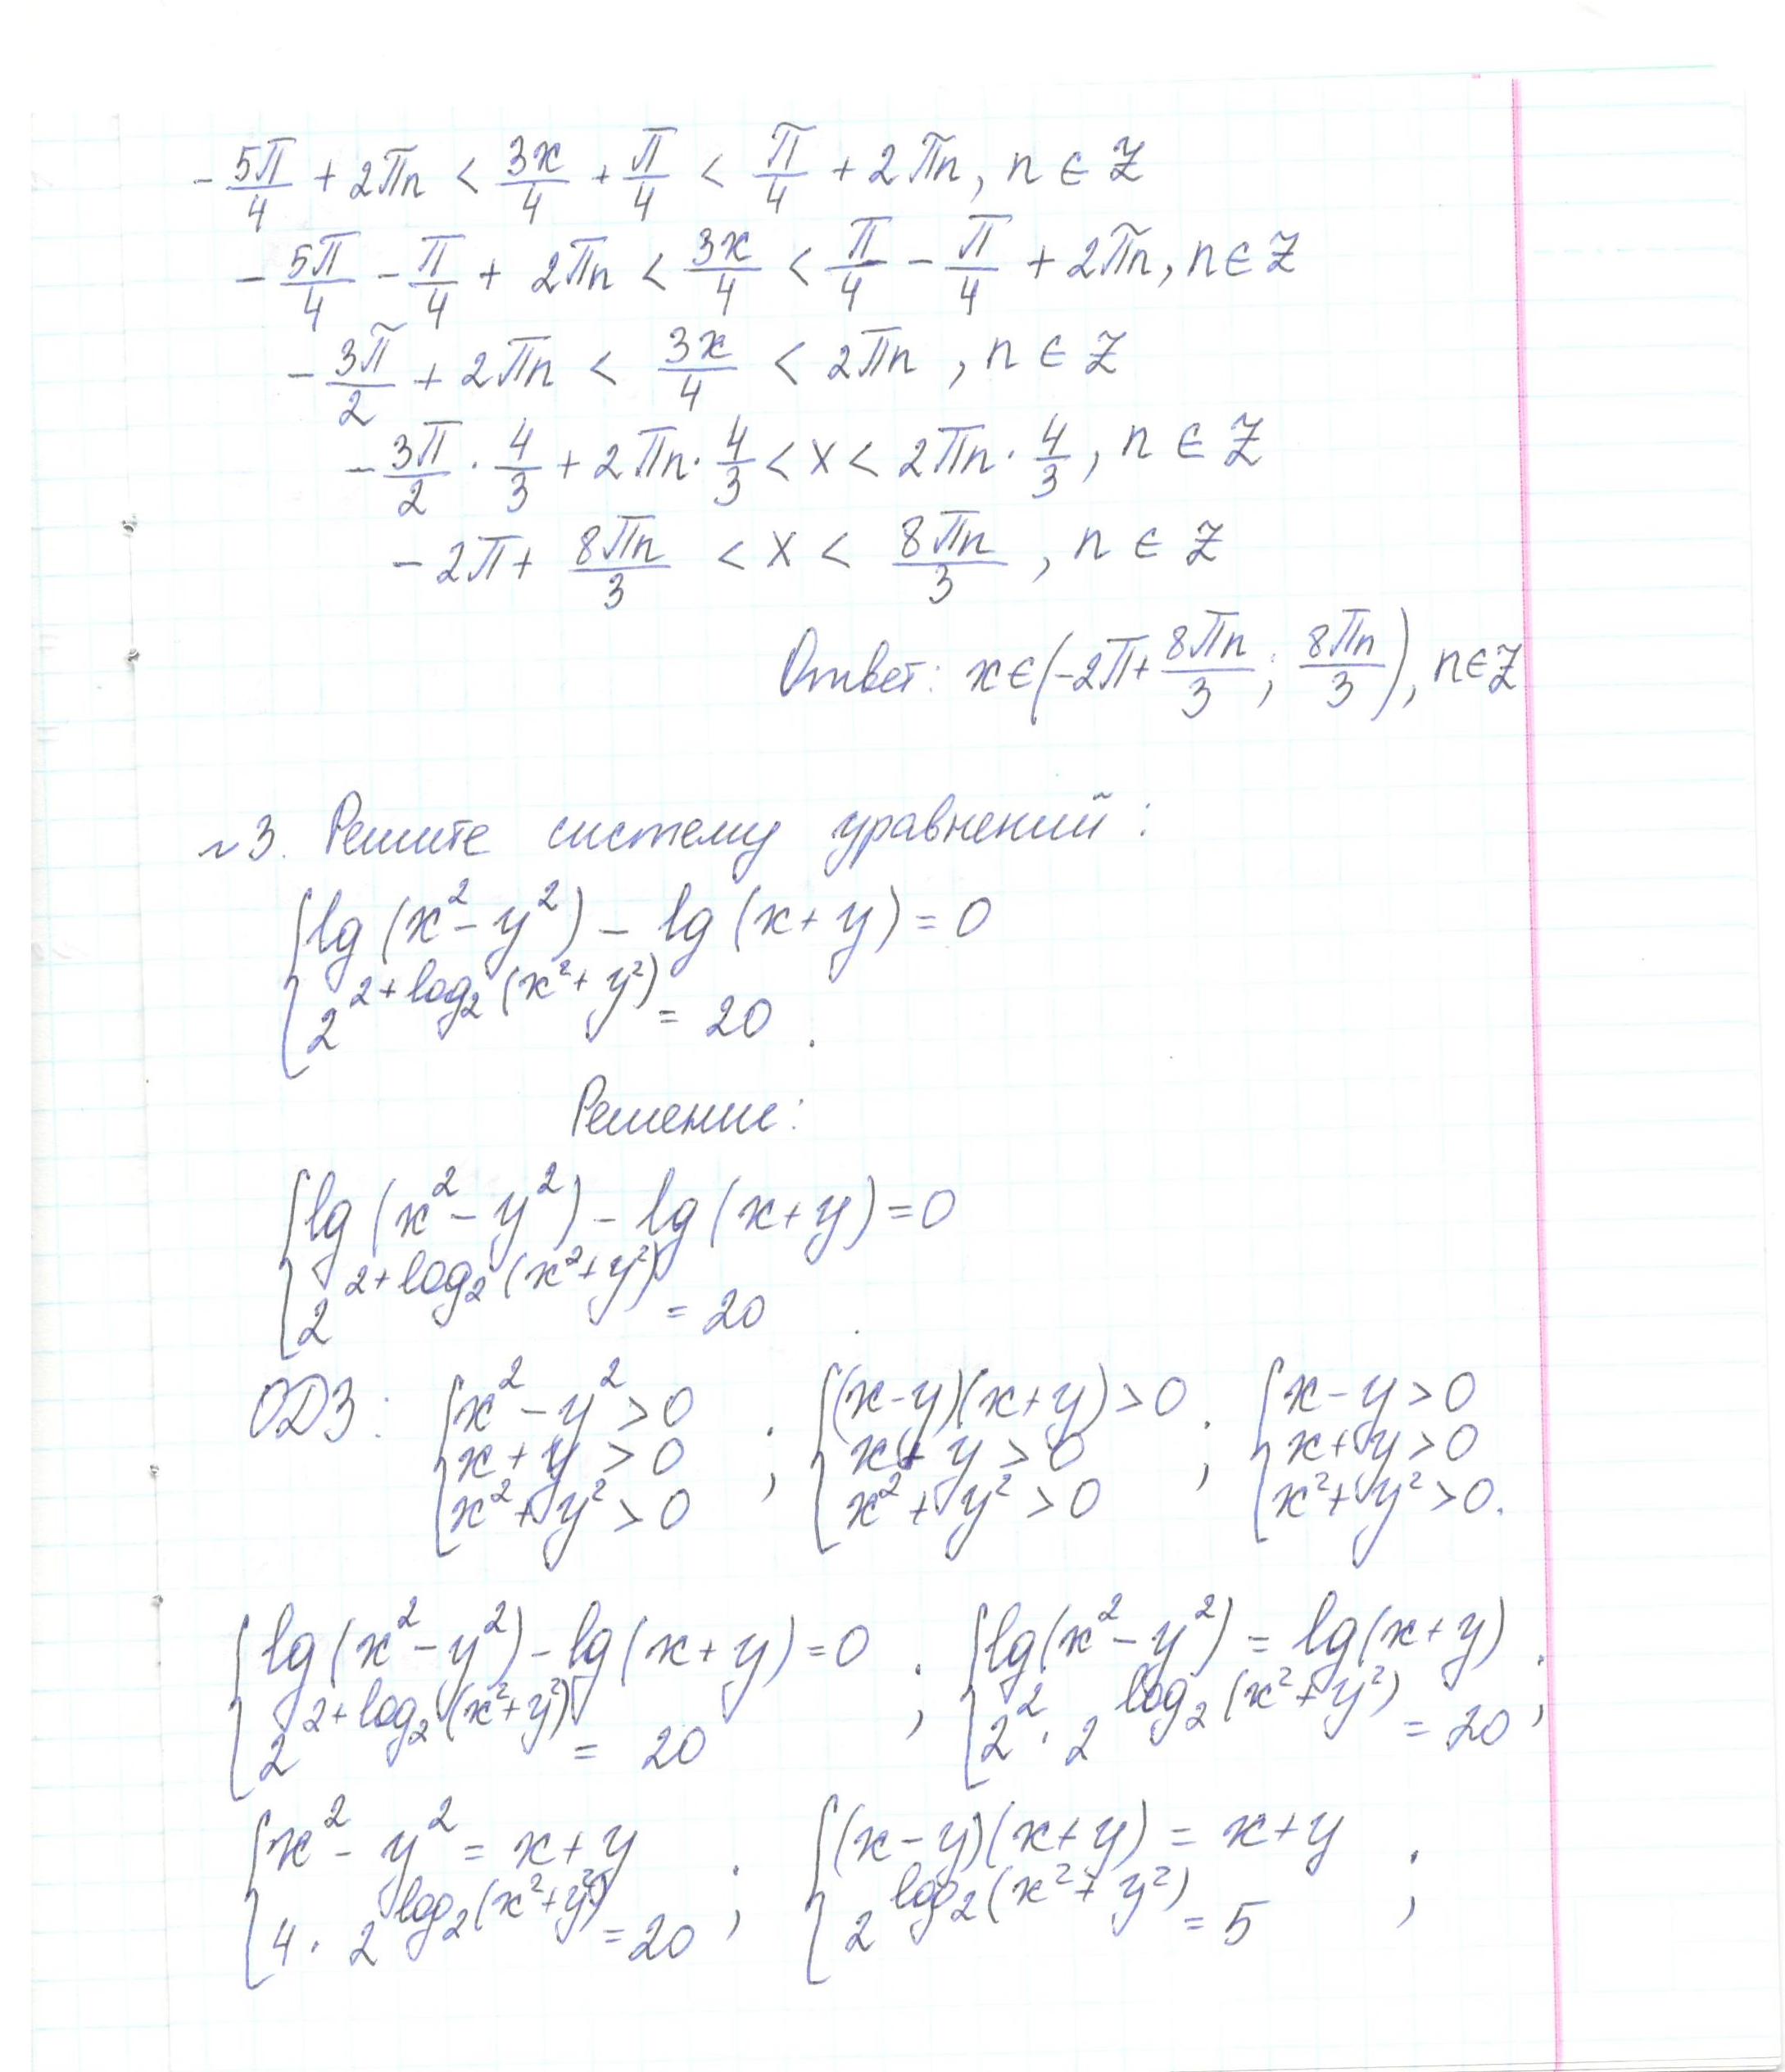 -5π/4 + 2πn < 3x/4 + π/4 < π/4 + 2πn, n ∈ Z
-5π/4 - π/4 + 2πn < 3x/4 < π/4 - π/4 + 2πn, n ∈ Z
-3π/2 + 2πn < 3x/4 < 2πn, n ∈ Z
-3π/2 · 4/3 + 2πn · 4/3 < x < 2πn · 4/3, n ∈ Z
-2π + 8πn/3 < x < 8πn/3, n ∈ Z
Ответ: x ∈ (-2π + 8πn/3; 8πn/3), n ∈ Z
№3. Решите систему уравнений:
{ lg(x² - y²) - lg(x + y) = 0
2^(2 + log₂(x² + y²)) = 20.
Решение:
{ lg(x² - y²) - lg(x + y) = 0
2^(2 + log₂(x² + y²)) = 20.
ОДЗ: { x² - y² > 0 ; { (x - y)(x + y) > 0 ; { x - y > 0
x + y > 0 x + y > 0 x + y > 0
x² + y² > 0 x² + y² > 0 x² + y² > 0.
{ lg(x² - y²) - lg(x + y) = 0 ; { lg(x² - y²) = lg(x + y) ;
2^(2 + log₂(x² + y²)) = 20 2² · 2^(log₂(x² + y²)) = 20
{ x² - y² = x + y ; { (x - y)(x + y) = x + y ;
4 · 2^(log₂(x² + y²)) = 20 2^(log₂(x² + y²)) = 5